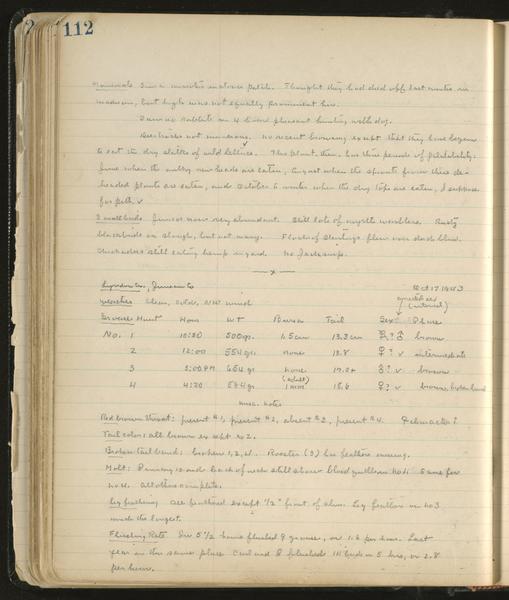 112
Mammals Saw a muskrat in stone patch. Thought they had died off last winter in
madison, but high was not equally prominent here.
Saw no rabbits in 4 hours pheasant hunting with dog.
Deer tracks not numerous. No recent browsing except that they have begun
to eat the dry stalks of wild lettuce. This plant, then, has three periods of palatability:
June when the milky new heads are eaten, August when the sprouts from these de-
headed plants are eaten, and October to winter when the dry tops are eaten, I suppose
for pith. ✓
Small birds Juncos now very abundant. Still lots of myrtle warblers. Rusty
blackbirds on slough, but not many. Flock of starlings flew over duck blind.
Chickadees still eating hemp in yard. No Jacksnips.
x
Lyndon Sta, Juneau Co Oct 17 1943
Weather Clear, cold, NW wind
Grouse Hunt Hour Wt Bursa Tail Sex Phase
No. 1 10:30 500gr. 1.5cm 13.3cm ♂ brown
2 12:00 554gr none 13.8 ♀? ✓ intermediate
3 3:00PM 654gr none ♂? ✓ brown
(adult)
4 4:30 1cm 13.6 ♀? ✓ brown, broken band
misc. notes
Red brown throat: present #1, present #2, absent #3, present #4.
Tail color: all brown except no 2.
Broken tail band: broken 1, 2, 4. Rooster (3) has feathers missing.
Molt: Primary 10 and back of neck still show blood quills on no 1. Same for
no 4. All others complete.
Leg feathering All feathered except 1/2" front of shin. Leg feathers on no 3
much the longest.
Flushing Rate In 5 1/2 hours flushed 9 grouse, or 1.6 per hour. Last
year on this same place Carl and I flushed 14 birds in 5 hrs, or 2.8
per hour.